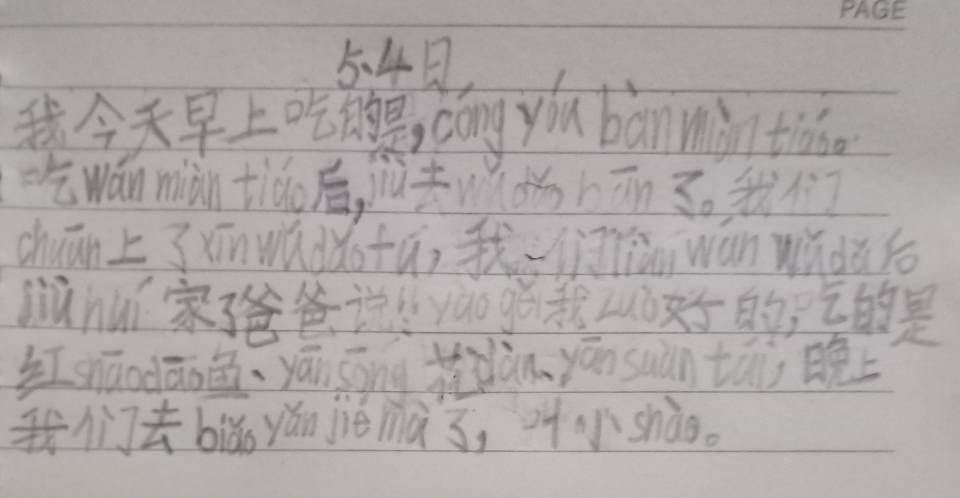 PAGE
5.4日
我今天早上吃的是,cóng yóu bàn miàn tiáo。
吃wán miàn tiáo后,jiù去wǔ dǎo bān了。我们
chuān上了xīn wǔ dǎo fú,我们liàn wán wǔ dǎ后
jiù huí家了爸爸说!!yào gěi我zuò好的,吃的是
红shāo dāo鱼、yān sōng 花dàn、yān suān tāi,晚上
我们去biǎo yǎn jié mù了,叫小shào。